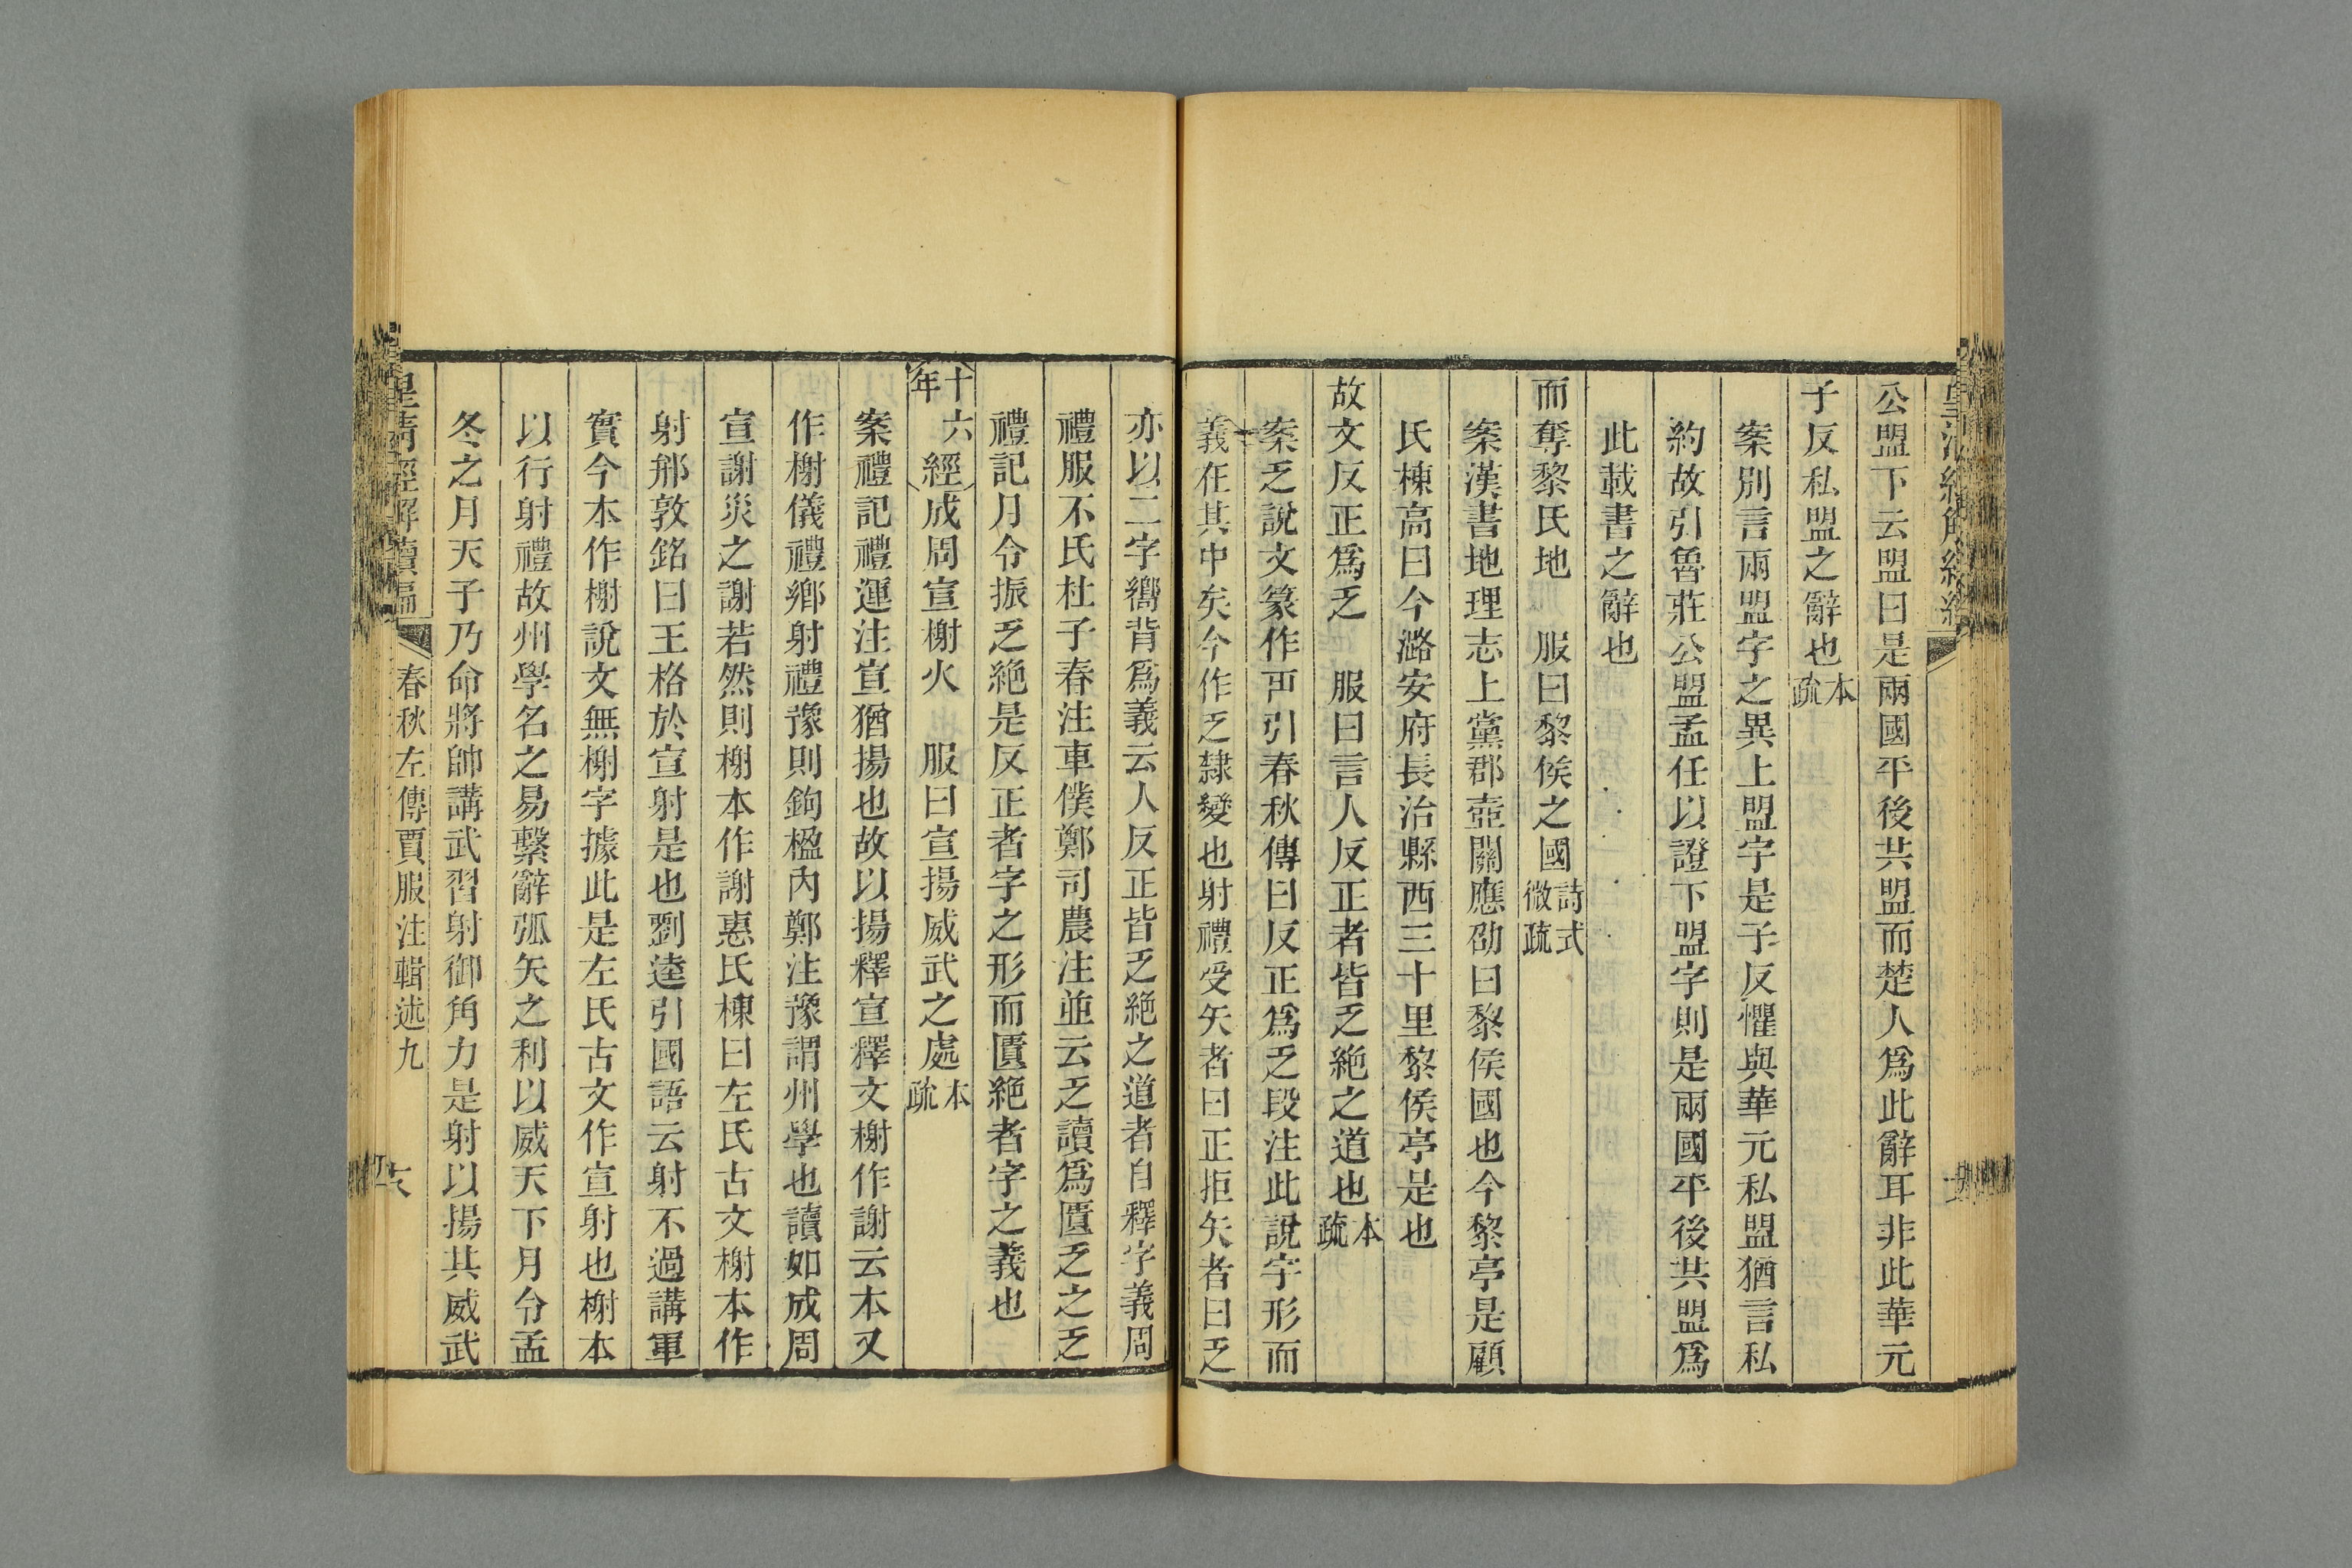 公盟下云盟曰是兩國平後共盟而楚人爲此辭耳非此華元
子反私盟之辭也本疏
案別言兩盟字之異上盟字是子反懼與華元私盟猶言私
約故引魯莊公盟孟任以證下盟字則是兩國平後共盟爲
此載書之辭也
而奪黎氏地 服曰黎侯之國詩式微疏
案漢書地理志上黨郡壺關應劭曰黎侯國也今黎亭是顧
氏棟高曰今潞安府長治縣西三十里黎侯亭是也
故文反正爲乏 服曰言人反正者皆乏絶之道也本疏
案乏說文篆作𠓟引春秋傳曰反正爲乏段注此說字形而
義在其中矣今作乏隸變也射禮受矢者曰正拒矢者曰乏
亦以二字嚮背爲義云人反正皆乏絶之道者自釋字義周
禮服不氏杜子春注車僕鄭司農注並云乏讀爲匱乏之乏
禮記月令振乏絶是反正者字之形而匱絶者字之義也
十六年經成周宣榭火 服曰宣揚威武之處本疏
案禮記禮運注宣猶揚也故以揚釋宣釋文榭作謝云本又
作榭儀禮鄉射禮豫則鉤楹內鄭注豫謂州學也讀如成周
宣謝災之謝若然則榭本作謝惠氏棟曰左氏古文榭本作
射邢敦銘曰王格於宣射是也劉逵引國語云射不過講軍
實今本作榭說文無榭字據此是左氏古文作宣射也榭本
以行射禮故州學名之易繫辭弧矢之利以威天下月令孟
冬之月天子乃命將帥講武習射御角力是射以揚其威武
皇清經解續編 春秋左傳賈服注輯述九